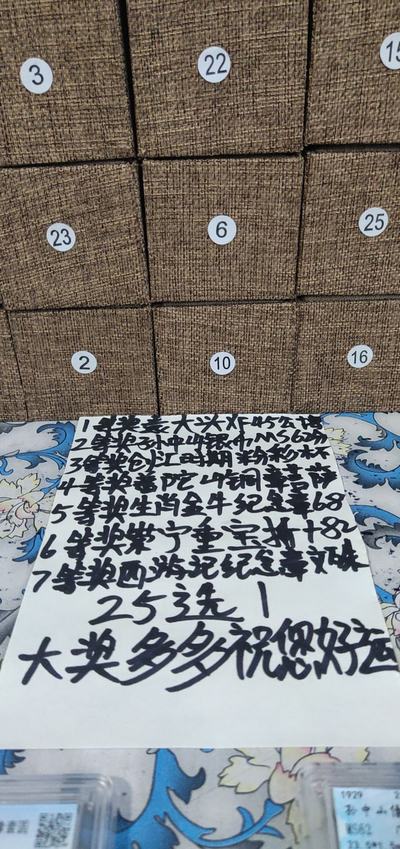 3
22
15
23
6
25
2
10
16
1等奖袁大头XF45公博
2等奖孙中山银币MS62
3等奖创汇时期粉彩杯
4等奖普陀山铜章菩萨
5等奖生肖金牛纪念章68
6等奖崇宁重宝折十82
7等奖西游记纪念章
25选1
大奖多多祝您好运
1929
孙中山
MS62